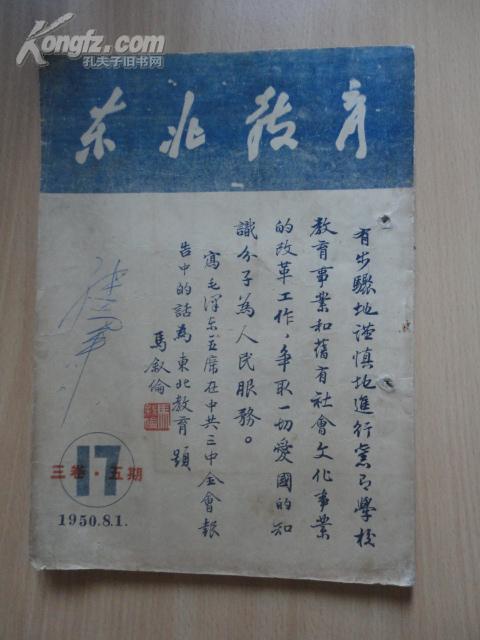 Kongfz.com
孔夫子旧书网
东北教育
有步驟地謹慎地進行舊有學校
教育事業和舊有社會文化事業
的改革工作，爭取一切愛國的知
識分子為人民服務。
寫毛澤东主席在中共三中全會報
告中的話為東北教育 題
馬叙倫
17
三卷·五期
1950.8.1.